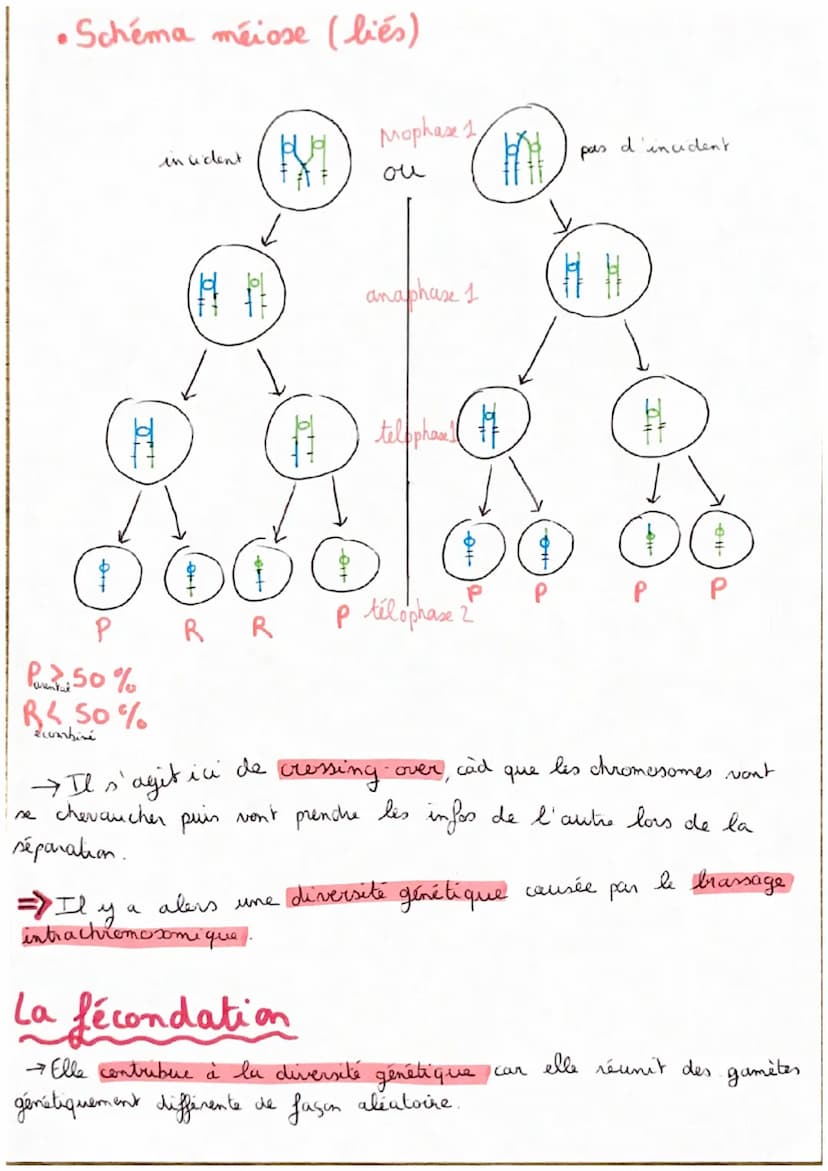 • Schéma méiose (liés)
incident
Prophase 1
ou
pas d'incident
anaphase 1
télophase 1
P R R P télophase 2 P P P P
P > 50 %
arental
R < 50 %
ecombiné
→ Il s'agit ici de crossing-over, càd que les chromosomes vont
se chevaucher puis vont prendre les infos de l'autre lors de la
séparation.
⇒ Il y a alors une diversité génétique causée par le brassage
intrachromosomique.
La fécondation
→ Elle contribue à la diversité génétique car elle réunit des gamètes
génétiquement différents de façon aléatoire.